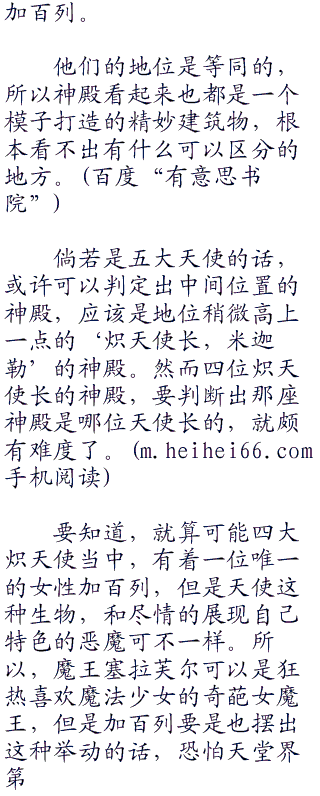 加百列。
他们的地位是等同的，
所以神殿看起来也都是一个
模子打造的精妙建筑物，根
本看不出有什么可以区分的
地方。(百度“有意思书
院”)
倘若是五大天使的话，
或许可以判定出中间位置的
神殿，应该是地位稍微高上
一点的‘炽天使长，米迦
勒’的神殿。然而四位炽天
使长的神殿，要判断出那座
神殿是哪位天使长的，就颇
有难度了。(m.heihei66.com
手机阅读)
要知道，就算可能四大
炽天使当中，有着一位唯一
的女性加百列，但是天使这
种生物，和尽情的展现自己
特色的恶魔可不一样。所
以，魔王塞拉芙尔可以是狂
热喜欢魔法少女的奇葩女魔
王，但是加百列要是也摆出
这种举动的话，恐怕天堂界
第